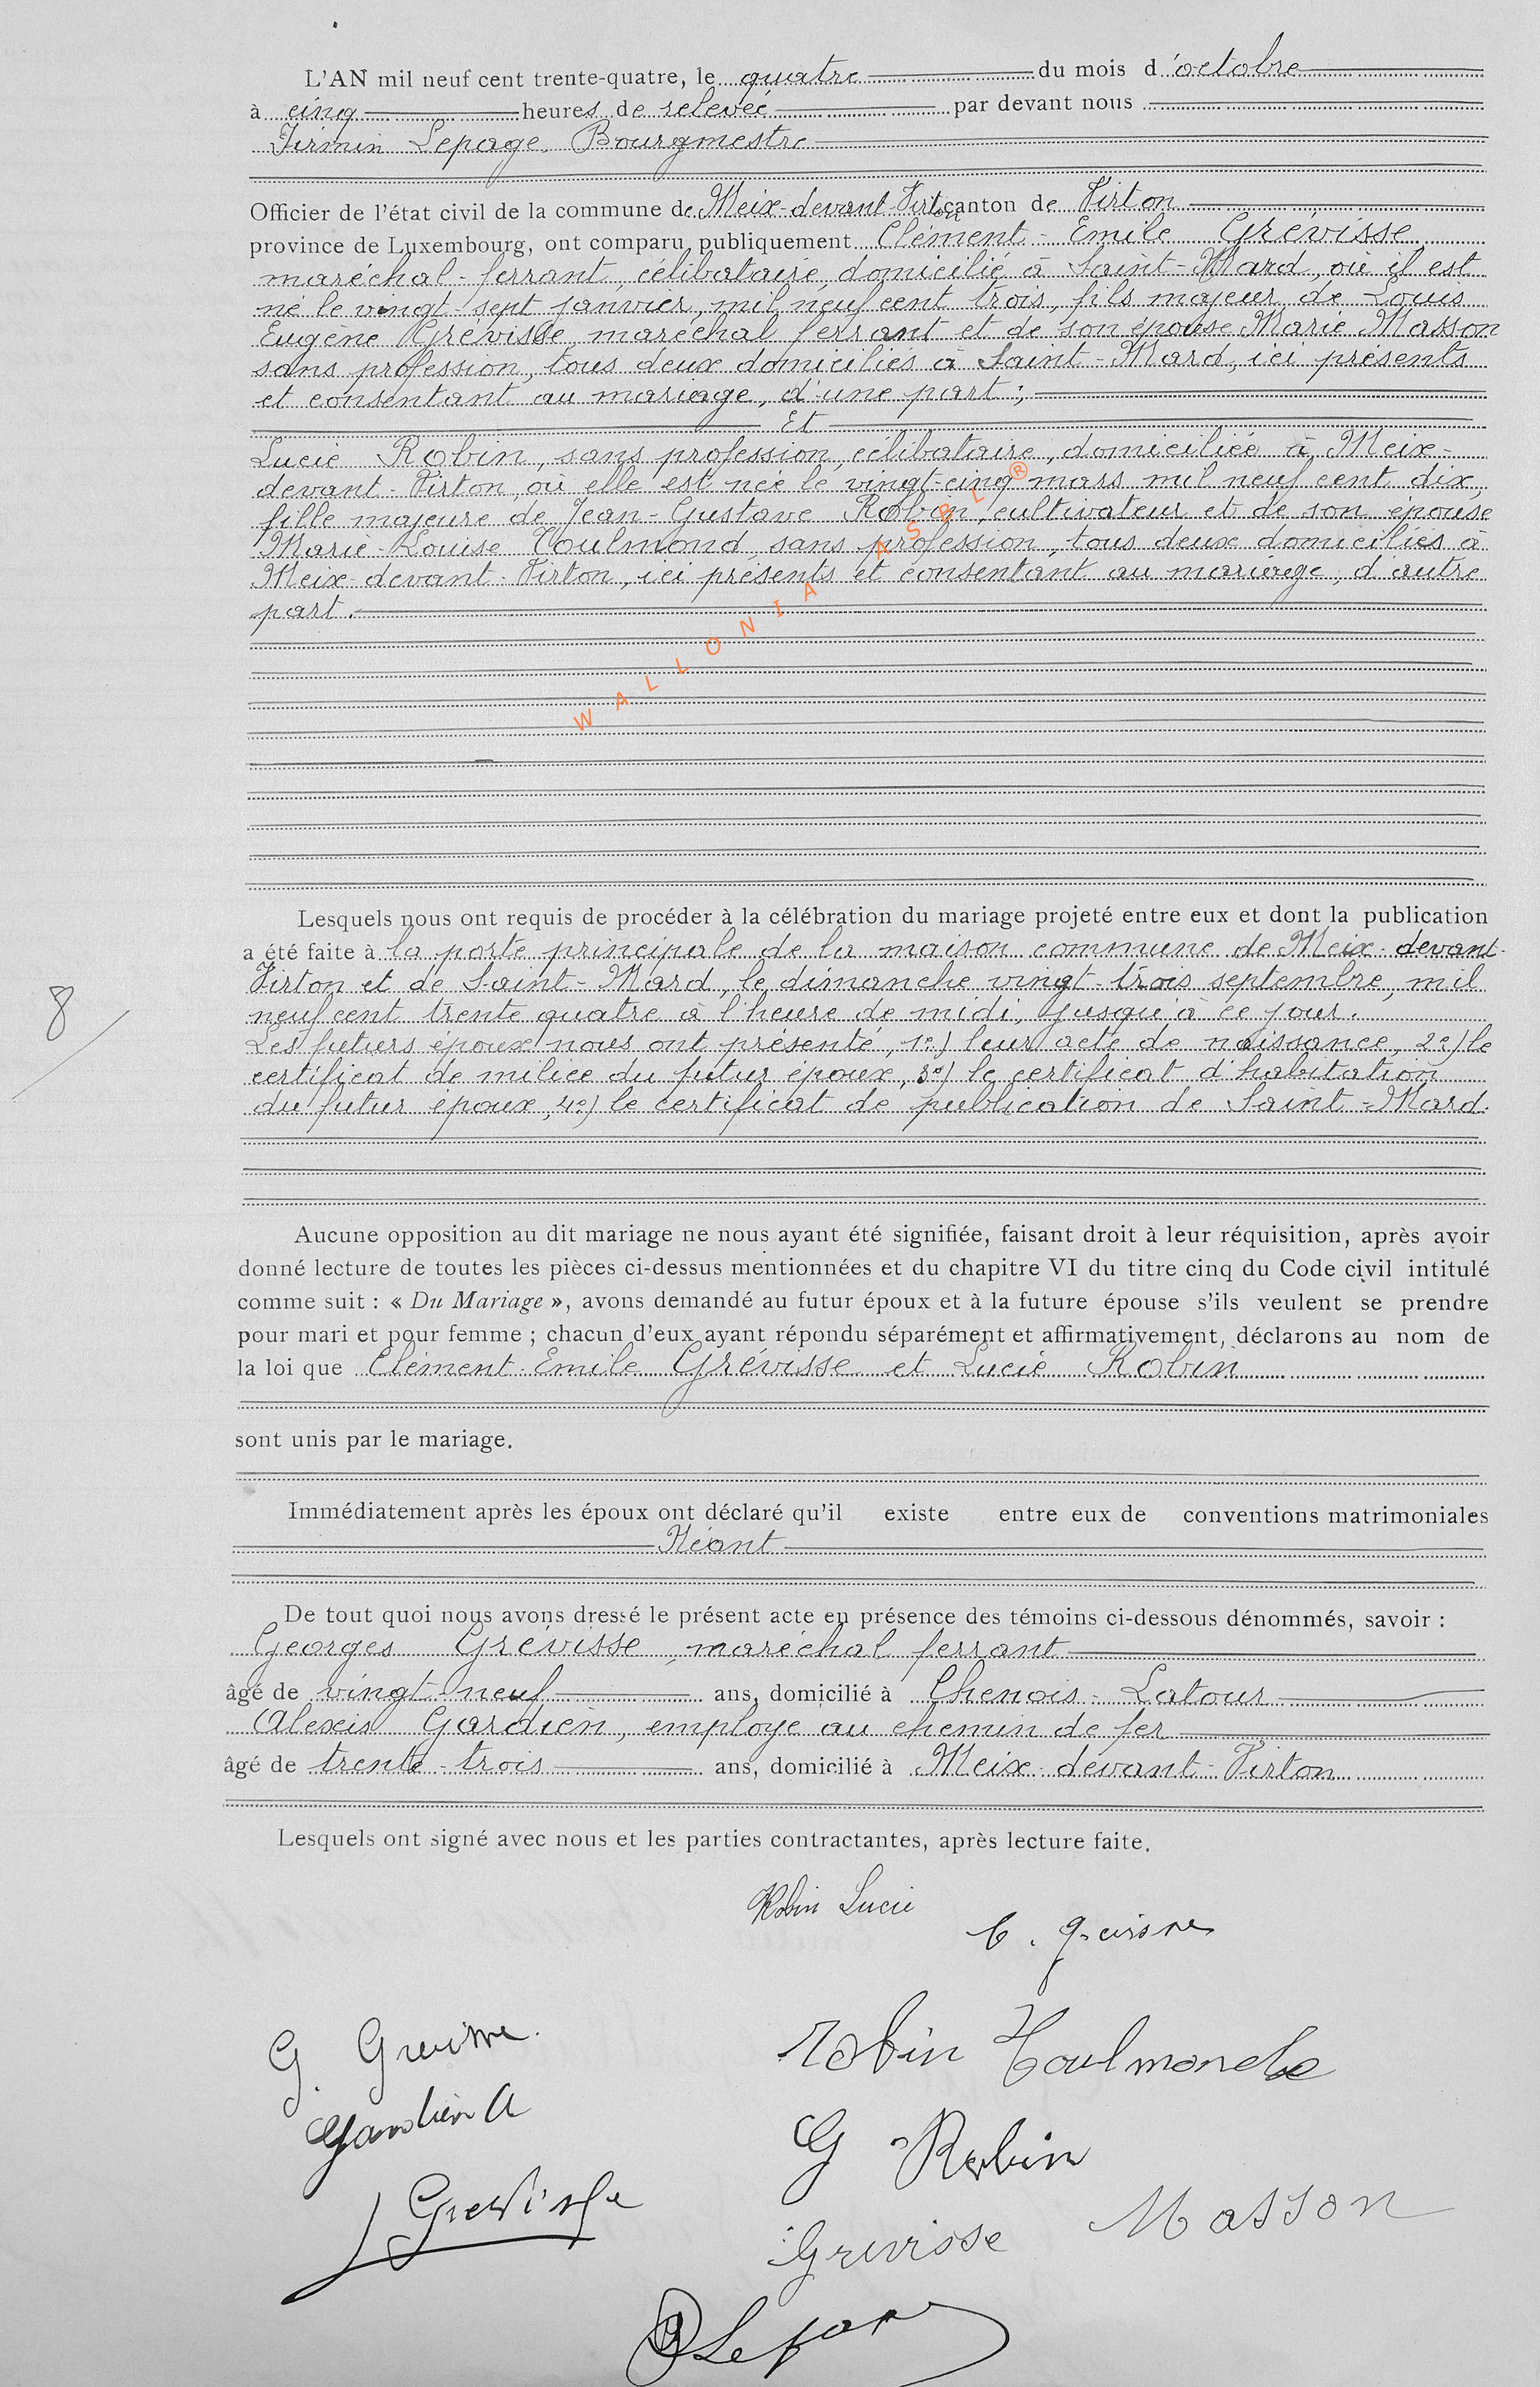 L'AN mil neuf cent trente-quatre, le quatre du mois d'octobre
à cinq heures de relevée par devant nous
Firmin Lepage, Bourgmestre
Officier de l'état civil de la commune de Meix-devant-Virton canton de Virton
province de Luxembourg, ont comparu publiquement Clément-Emile Grévisse,
maréchal-ferrant, célibataire, domicilié à Saint-Mard, où il est
né le vingt-sept janvier, mil neuf cent trois, fils majeur de Louis
Eugène Grévisse, maréchal ferrant et de son épouse Marie Masson
sans profession, tous deux domiciliés à Saint-Mard, ici présents
et consentant au mariage, d'une part ;
Et
Lucie Robin, sans profession, célibataire, domiciliée à Meix-
devant-Virton, où elle est née le vingt-cinq mars mil neuf cent dix,
fille majeure de Jean-Gustave Robin, cultivateur et de son épouse
Marie-Louise Toulmond, sans profession, tous deux domiciliés à
Meix-devant-Virton, ici présents et consentant au mariage, d'autre
part.
WALLONIA ASBL ®
Lesquels nous ont requis de procéder à la célébration du mariage projeté entre eux et dont la publication
a été faite à la porte principale de la maison commune de Meix-devant-
Virton et de Saint-Mard, le dimanche vingt-trois septembre, mil
neuf cent trente quatre à l'heure de midi, jusqu'à ce jour.
Les futurs époux nous ont présenté, 1e) leur acte de naissance, 2e) le
certificat de milice du futur époux, 3e) le certificat d'habitation
du futur époux, 4e) le certificat de publication de Saint-Mard.
8
Aucune opposition au dit mariage ne nous ayant été signifiée, faisant droit à leur réquisition, après avoir
donné lecture de toutes les pièces ci-dessus mentionnées et du chapitre VI du titre cinq du Code civil intitulé
comme suit : « Du Mariage », avons demandé au futur époux et à la future épouse s'ils veulent se prendre
pour mari et pour femme ; chacun d'eux ayant répondu séparément et affirmativement, déclarons au nom de
la loi que Clément-Emile Grévisse et Lucie Robin
sont unis par le mariage.
Immédiatement après les époux ont déclaré qu'il existe entre eux de conventions matrimoniales
Néant
De tout quoi nous avons dressé le présent acte en présence des témoins ci-dessous dénommés, savoir :
Georges Grévisse, maréchal ferrant
âgé de vingt-neuf ans, domicilié à Chenois-Latour
Alexis Gardien, employé au chemin de fer
âgé de trente-trois ans, domicilié à Meix-devant-Virton
Lesquels ont signé avec nous et les parties contractantes, après lecture faite.
Robin Lucie
C. Grevisse
G. Grevisse.
Robin Toulmonde
Gardien A
G Robin
Grevisse
Grevisse Masson
Lepage